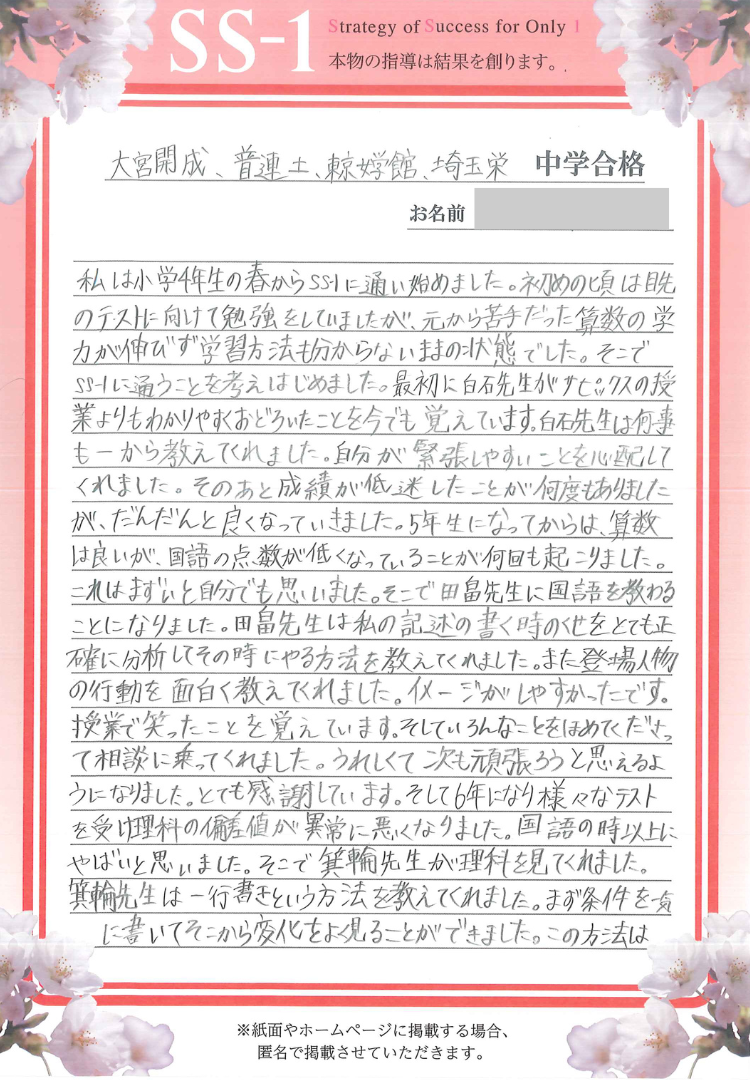 SS-1
Strategy of Success for Only 1
本物の指導は結果を創ります。
大宮開成、普連土、東京女学館、埼玉栄 中学合格
お名前
私は小学4年生の春からSS-1に通い始めました。初めの頃は目先
のテストに向けて勉強をしていましたが、元から苦手だった算数の学
力が伸びず学習方法も分からないままの状態でした。そこで
SS-1に通うことを考えはじめました。最初に白石先生がサピックスの授
業よりもわかりやすくおどろいたことを今でも覚えています。白石先生は何事
も一から教えてくれました。自分が緊張しやすいことを心配して
くれました。そのあと成績が低迷したことが何度もありました
が、だんだんと良くなっていきました。5年生になってからは、算数
は良いが、国語の点数が低くなっていることが何回も起こりました。
これはまずいと自分でも思いました。そこで田畠先生に国語を教わる
ことになりました。田畠先生は私の記述の書く時のくせをとても正
確に分析してその時にやる方法を教えてくれました。また登場人物
の行動を面白く教えてくれました。イメージがしやすかったです。
授業で笑ったことを覚えています。そしていろんなことをほめてくださっ
て相談に乗ってくれました。うれしくて次も頑張ろうと思えるよ
うになりました。とても感謝しています。そして6年になり様々なテスト
を受け理科の偏差値が異常に悪くなりました。国語の時以上に
やばいと思いました。そこで箕輪先生が理科を見てくれました。
箕輪先生は一行書きという方法を教えてくれました。まず条件を一気
に書いてそこから変化をよく見ることができました。この方法は
※紙面やホームページに掲載する場合、
匿名で掲載させていただきます。